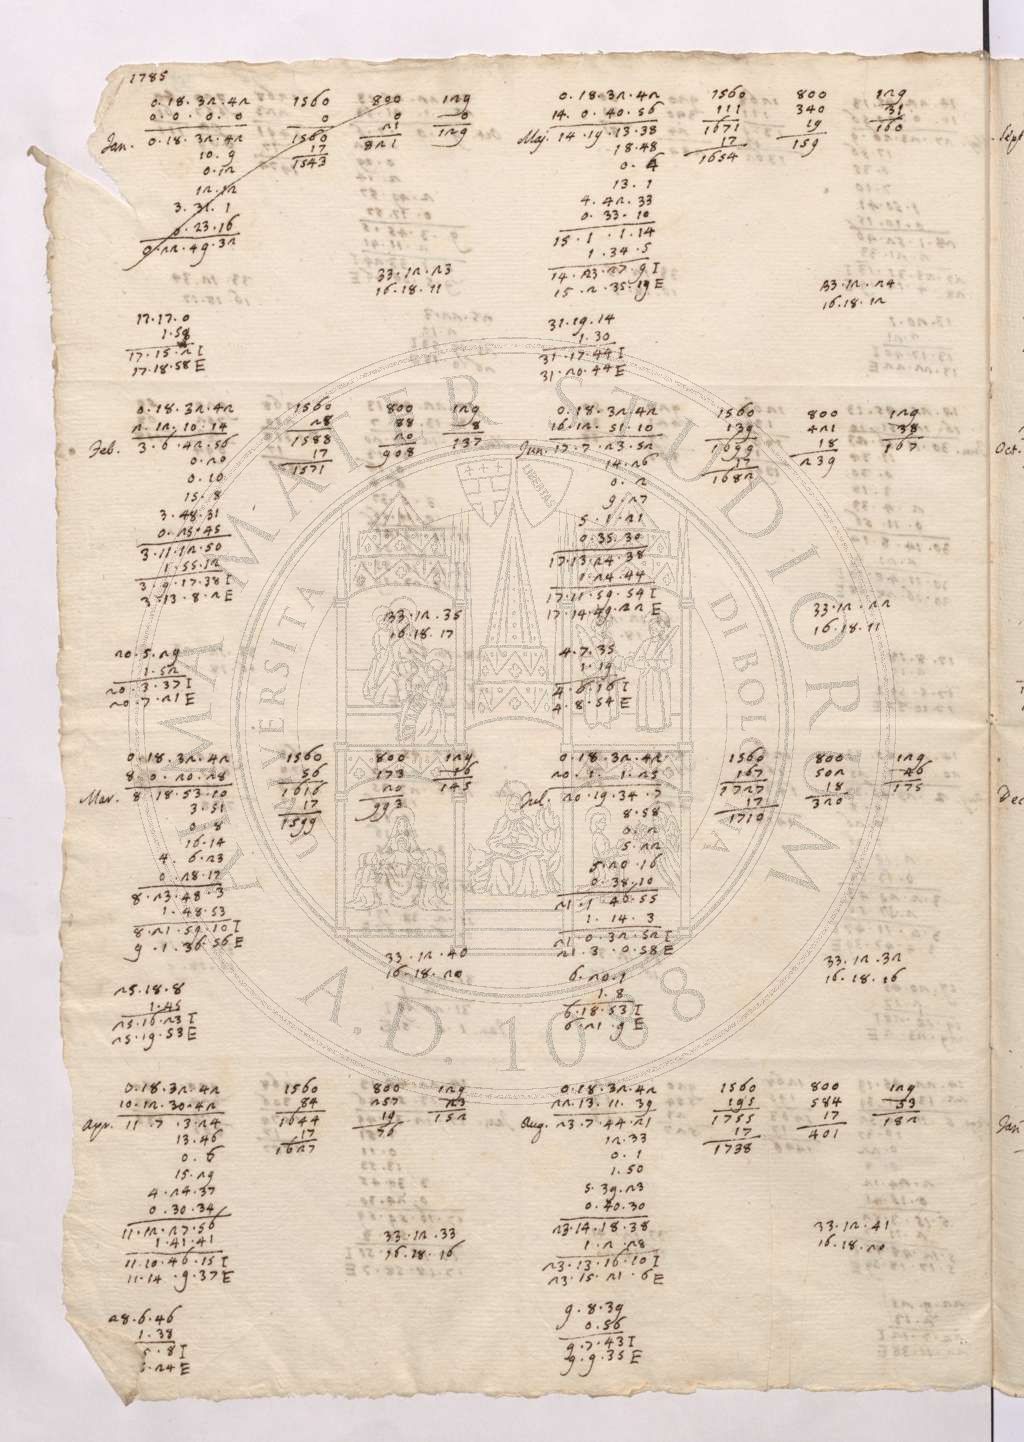 1785
Jan.
0.18.32.42
0.0.0.0
0.18.32.42
10.9
0.12
12.12
3.31.1
0.23.16
0.22.49.32
1560
0
1560
17
1543
800
0
21
821
129
0
129
33.12.23
16.18.11
17.17.0
1.58
17.15.2 I
17.18.58 E
Maj.
0.18.32.42
14.0.40.56
14.19.13.38
18.48
0.4
13.1
4.42.33
0.33.10
15.1.1.14
1.34.5
14.23.27.9 I
15.2.35.19 E
1560
111
1671
17
1654
800
340
19
159
129
31
160
33.12.24
16.18.12
31.19.14
1.30
31.17.44 I
31.20.44 E
Feb.
0.18.32.42
2.12.10.14
3.6.42.56
0.20
0.10
15.8
3.48.31
0.23.45
3.11.12.50
1.55.12
3.9.17.38 I
3.13.8.2 E
1560
28
1588
17
1571
800
88
20
908
129
8
137
33.12.35
16.18.17
20.5.29
1.52
20.3.37 I
20.7.21 E
Jun.
0.18.32.42
16.12.51.10
17.7.23.52
14.26
0.2
9.27
5.1.21
0.35.30
17.13.24.38
1.24.44
17.11.59.54 I
17.14.49.22 E
1560
139
1699
17
1682
800
421
18
239
129
38
167
33.12.22
16.18.11
4.7.35
1.19
4.6.16 I
4.8.54 E
Mar.
0.18.32.42
8.0.20.28
8.18.53.10
3.51
0.8
16.14
4.6.23
0.28.17
8.23.48.3
1.48.53
8.21.59.10 I
9.1.36.56 E
1560
56
1616
17
1599
800
173
20
993
129
16
145
33.12.40
16.18.20
25.18.8
1.45
25.16.23 I
25.19.53 E
Jul.
0.18.32.42
20.1.1.25
20.19.34.7
8.58
0.2
5.22
5.20.16
0.38.10
21.1.46.55
1.14.3
21.0.32.52 I
21.3.0.58 E
1560
167
1727
17
1710
800
502
18
320
129
46
175
33.12.32
16.18.16
6.20.1
1.8
6.18.53 I
6.21.9 E
Apr.
0.18.32.42
10.12.30.42
11.7.3.24
13.46
0.6
15.29
4.24.37
0.30.34
11.12.27.56
1.41.41
11.10.46.15 I
11.14.9.37 E
1560
84
1644
17
1627
800
257
19
76
129
23
152
33.12.33
16.18.16
28.6.46
1.38
5.8 I
5.24 E
Aug.
0.18.32.42
22.13.11.39
23.7.44.21
12.33
0.1
1.50
5.39.23
0.40.30
23.14.18.38
1.2.28
23.13.16.10 I
23.15.21.6 E
1560
195
1755
17
1738
800
584
17
401
129
53
182
33.12.41
16.18.20
9.8.39
0.56
9.7.43 I
9.9.35 E
Sept
Oct.
Dec
Jan
ALMA MATER STUDIORUM
A.D. 1088
UNIVERSITA DI BOLOGNA
LIBERTAS